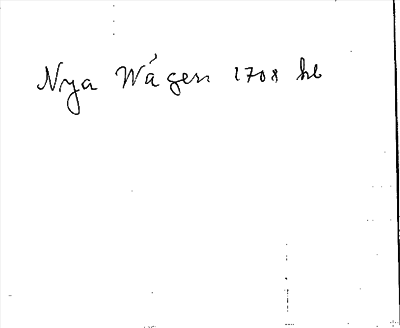 Nya Wágen 1708 hl